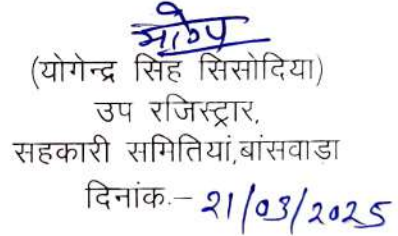 (योगेन्द्र सिंह सिसोदिया)
उप रजिस्ट्रार,
सहकारी समितियां,बांसवाडा
दिनांक.– 21/03/2025